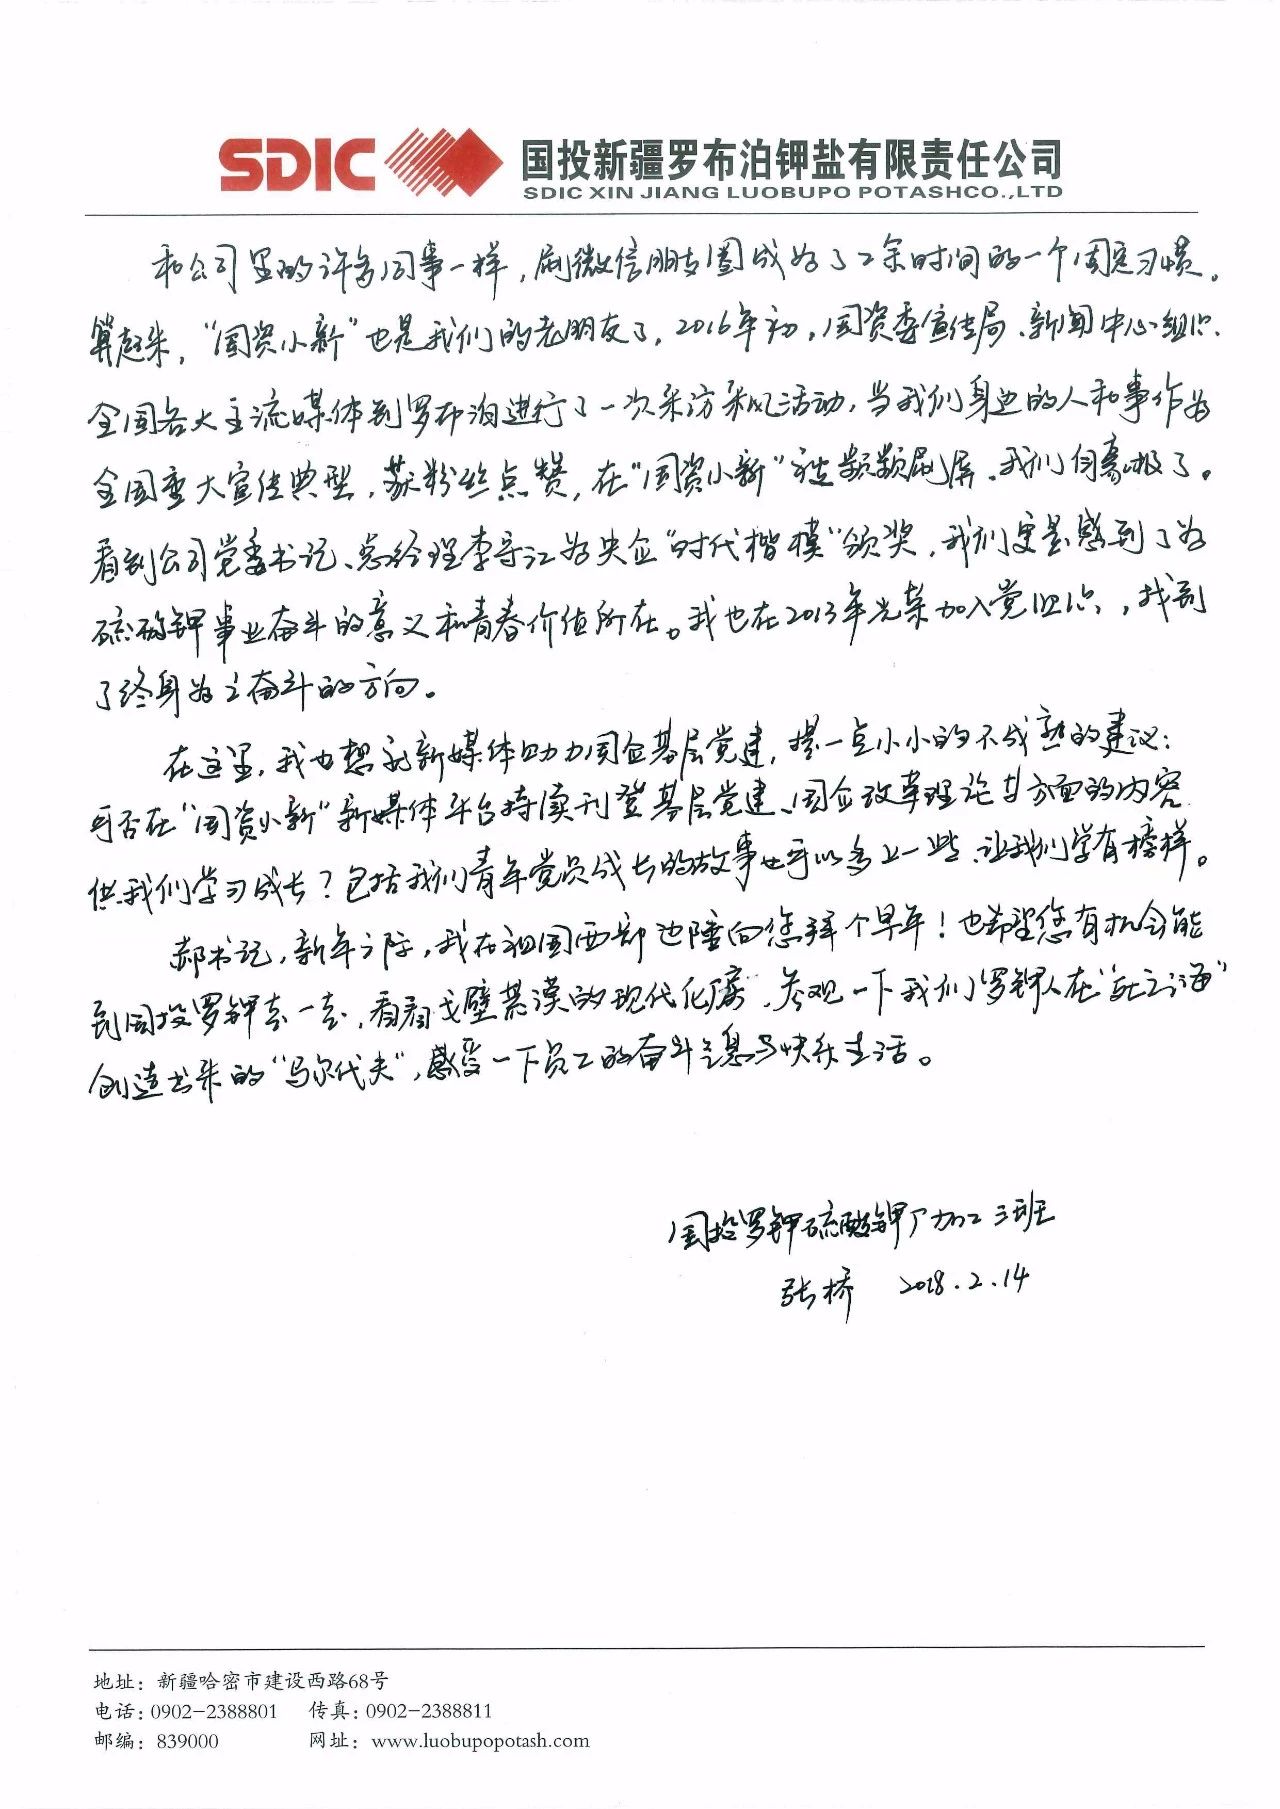 SDIC 国投新疆罗布泊钾盐有限责任公司
SDIC XIN JIANG LUOBUPO POTASHCO.,LTD
和公司里的许多同事一样，刷微信朋友圈成为了工余时间的一个固定习惯。
算起来，“国资小新”也是我们的老朋友了，2016年初，国资委宣传局、新闻中心组织
全国各大主流媒体到罗布泊进行了一次采访采风活动，当我们身边的人和事作为
全国重大宣传典型，获粉丝点赞，在“国资小新”频频刷屏，我们自豪极了。
看到公司党委书记、总经理李守江为央企“时代楷模”颁奖，我们更是感到了为
硫酸钾事业奋斗的意义和青春价值所在。我也在2013年光荣加入党组织，找到
了终身为之奋斗的方向。
在这里，我也想为新媒体助力国企基层党建，提一点小小的不成熟的建议：
可否在“国资小新”新媒体平台持续刊登基层党建、国企改革理论等方面的内容
供我们学习成长？包括我们青年党员成长的故事也可以多上一些，让我们学有榜样。
郝书记，新年之际，我在祖国西部边陲向您拜个早年！也希望您有机会能
到国投罗钾去一去，看看戈壁荒漠的现代化厂房，参观一下我们罗钾人在“死亡之海”
创造出来的“马尔代夫”，感受一下员工的奋斗气息与快乐生活。
国投罗钾硫酸钾厂加工三班
张桥 2018.2.14
地址：新疆哈密市建设西路68号
电话：0902-2388801 传真：0902-2388811
邮编：839000 网址：www.luobupopotash.com